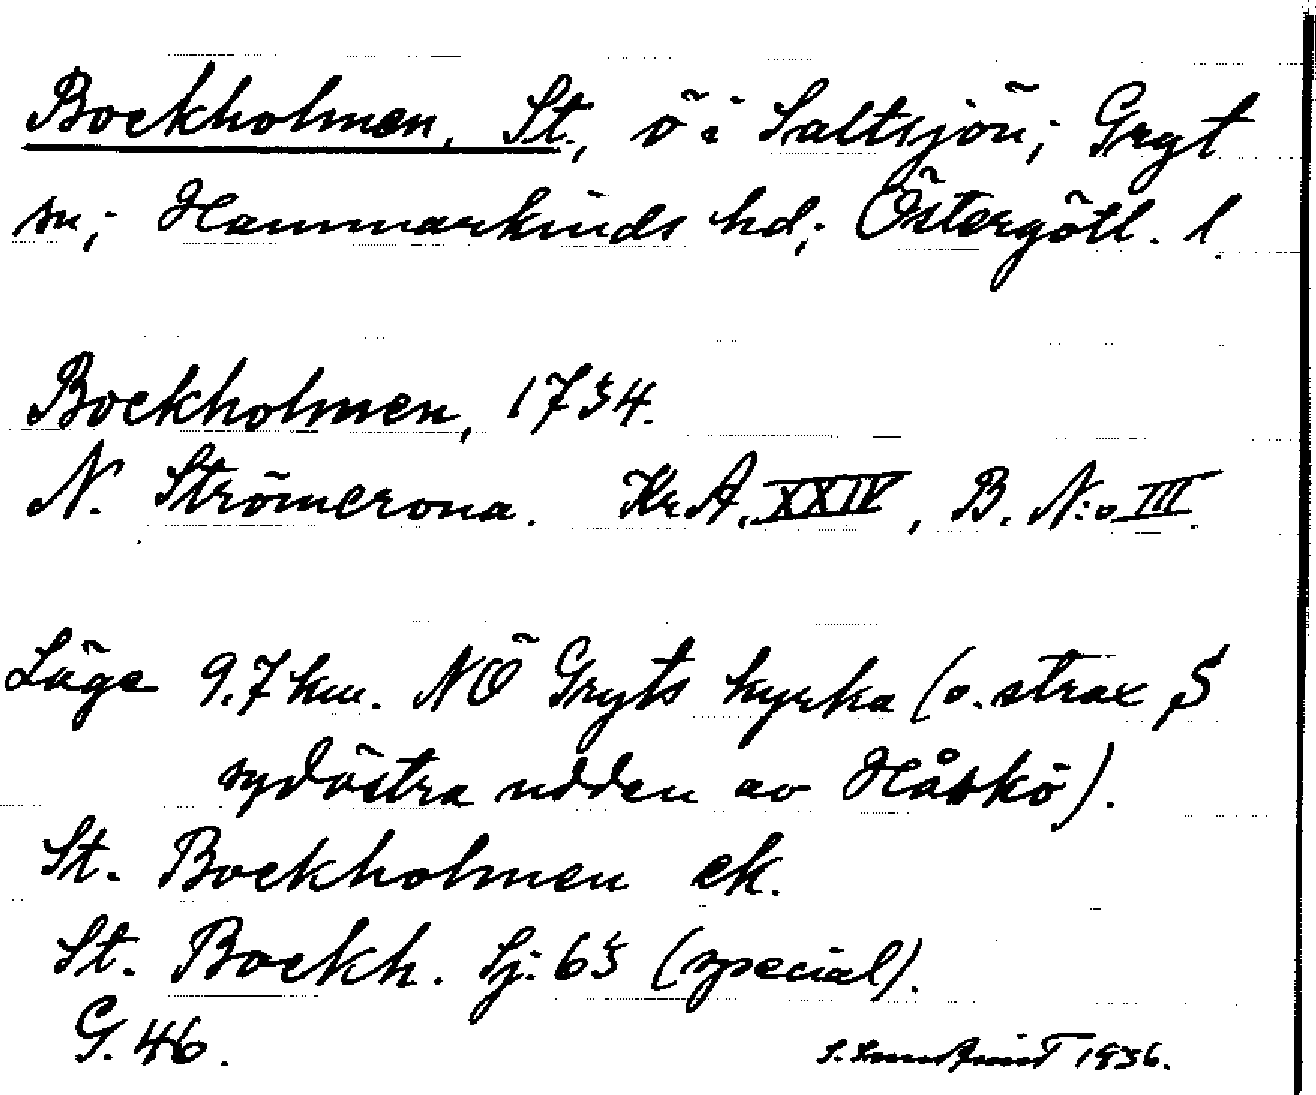 Bockholmen, St., ö i Saltsjön; Gryt
sn; Hammarkinds hd; Östergötl. l.
Bockholmen, 1734.
N. Strömcrona. Kr.A. XXIV, B. N:o III.
Läge 9.7 km. NÖ Gryts kyrka (o. strax S
sydöstra udden av Håskö).
St. Bockholmen ek.
St. Bockh. Sj: 63 (special).
G. 46.
1936.